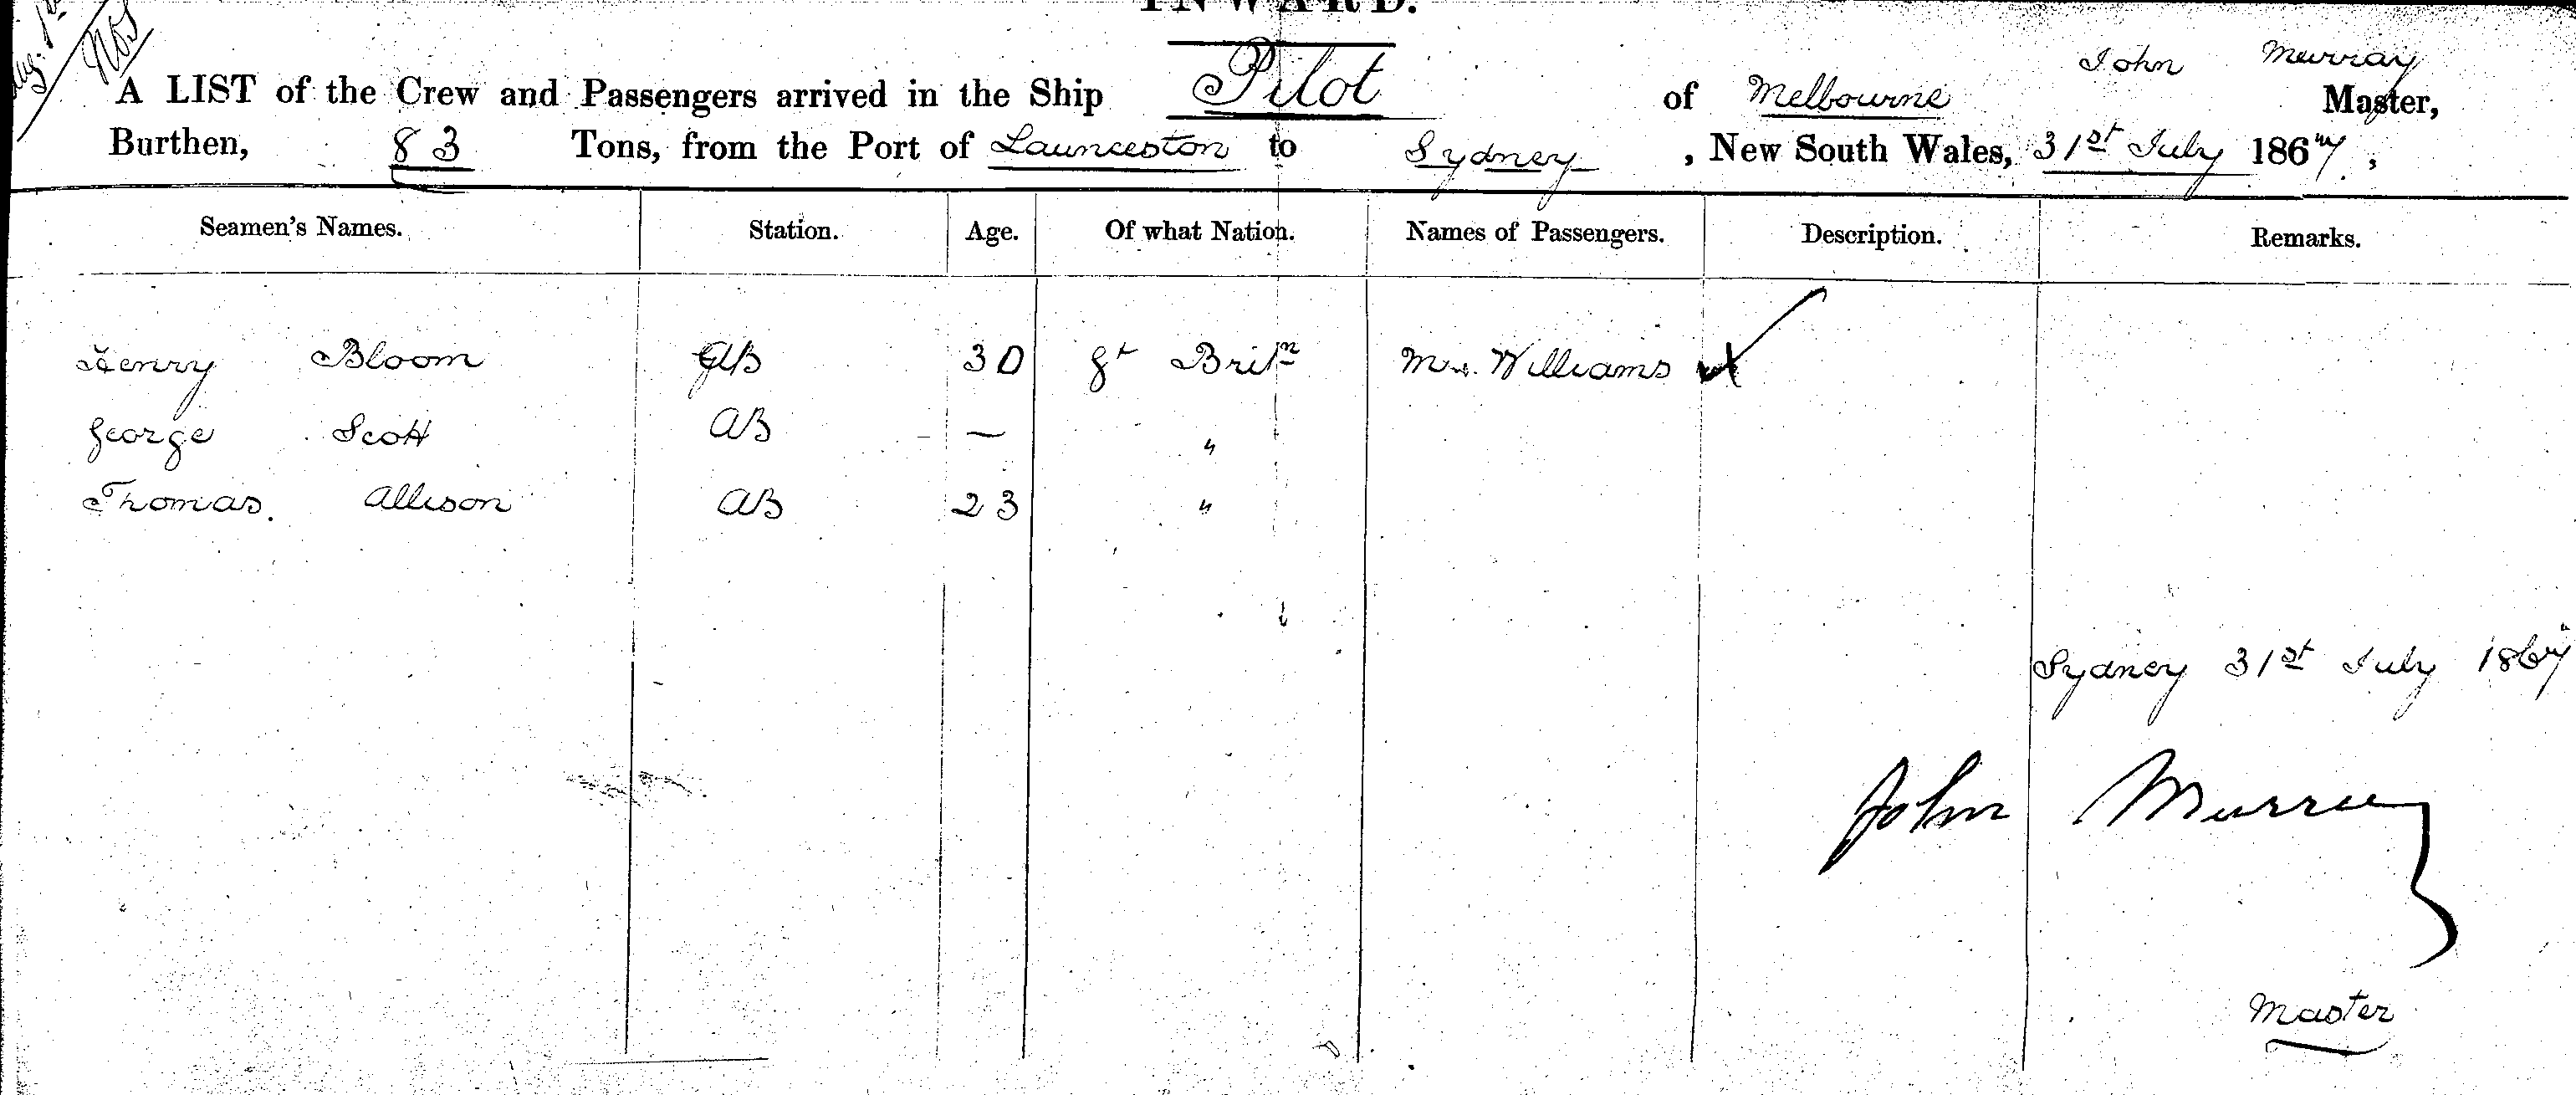 INWARD.
Aug. 1st
A LIST of the Crew and Passengers arrived in the Ship Pilot of Melbourne John Murray Master,
Burthen, 83 Tons, from the Port of Launceston to Sydney, New South Wales, 31st July 1867,
Seamen's Names. Station. Age. Of what Nation. Names of Passengers. Description. Remarks.
Henry Bloom AB 30 Gt Britn Mrs. Williams
George Scott AB — "
Thomas. Allison AB 23 "
Sydney 31st July 1867
John Murray
Master